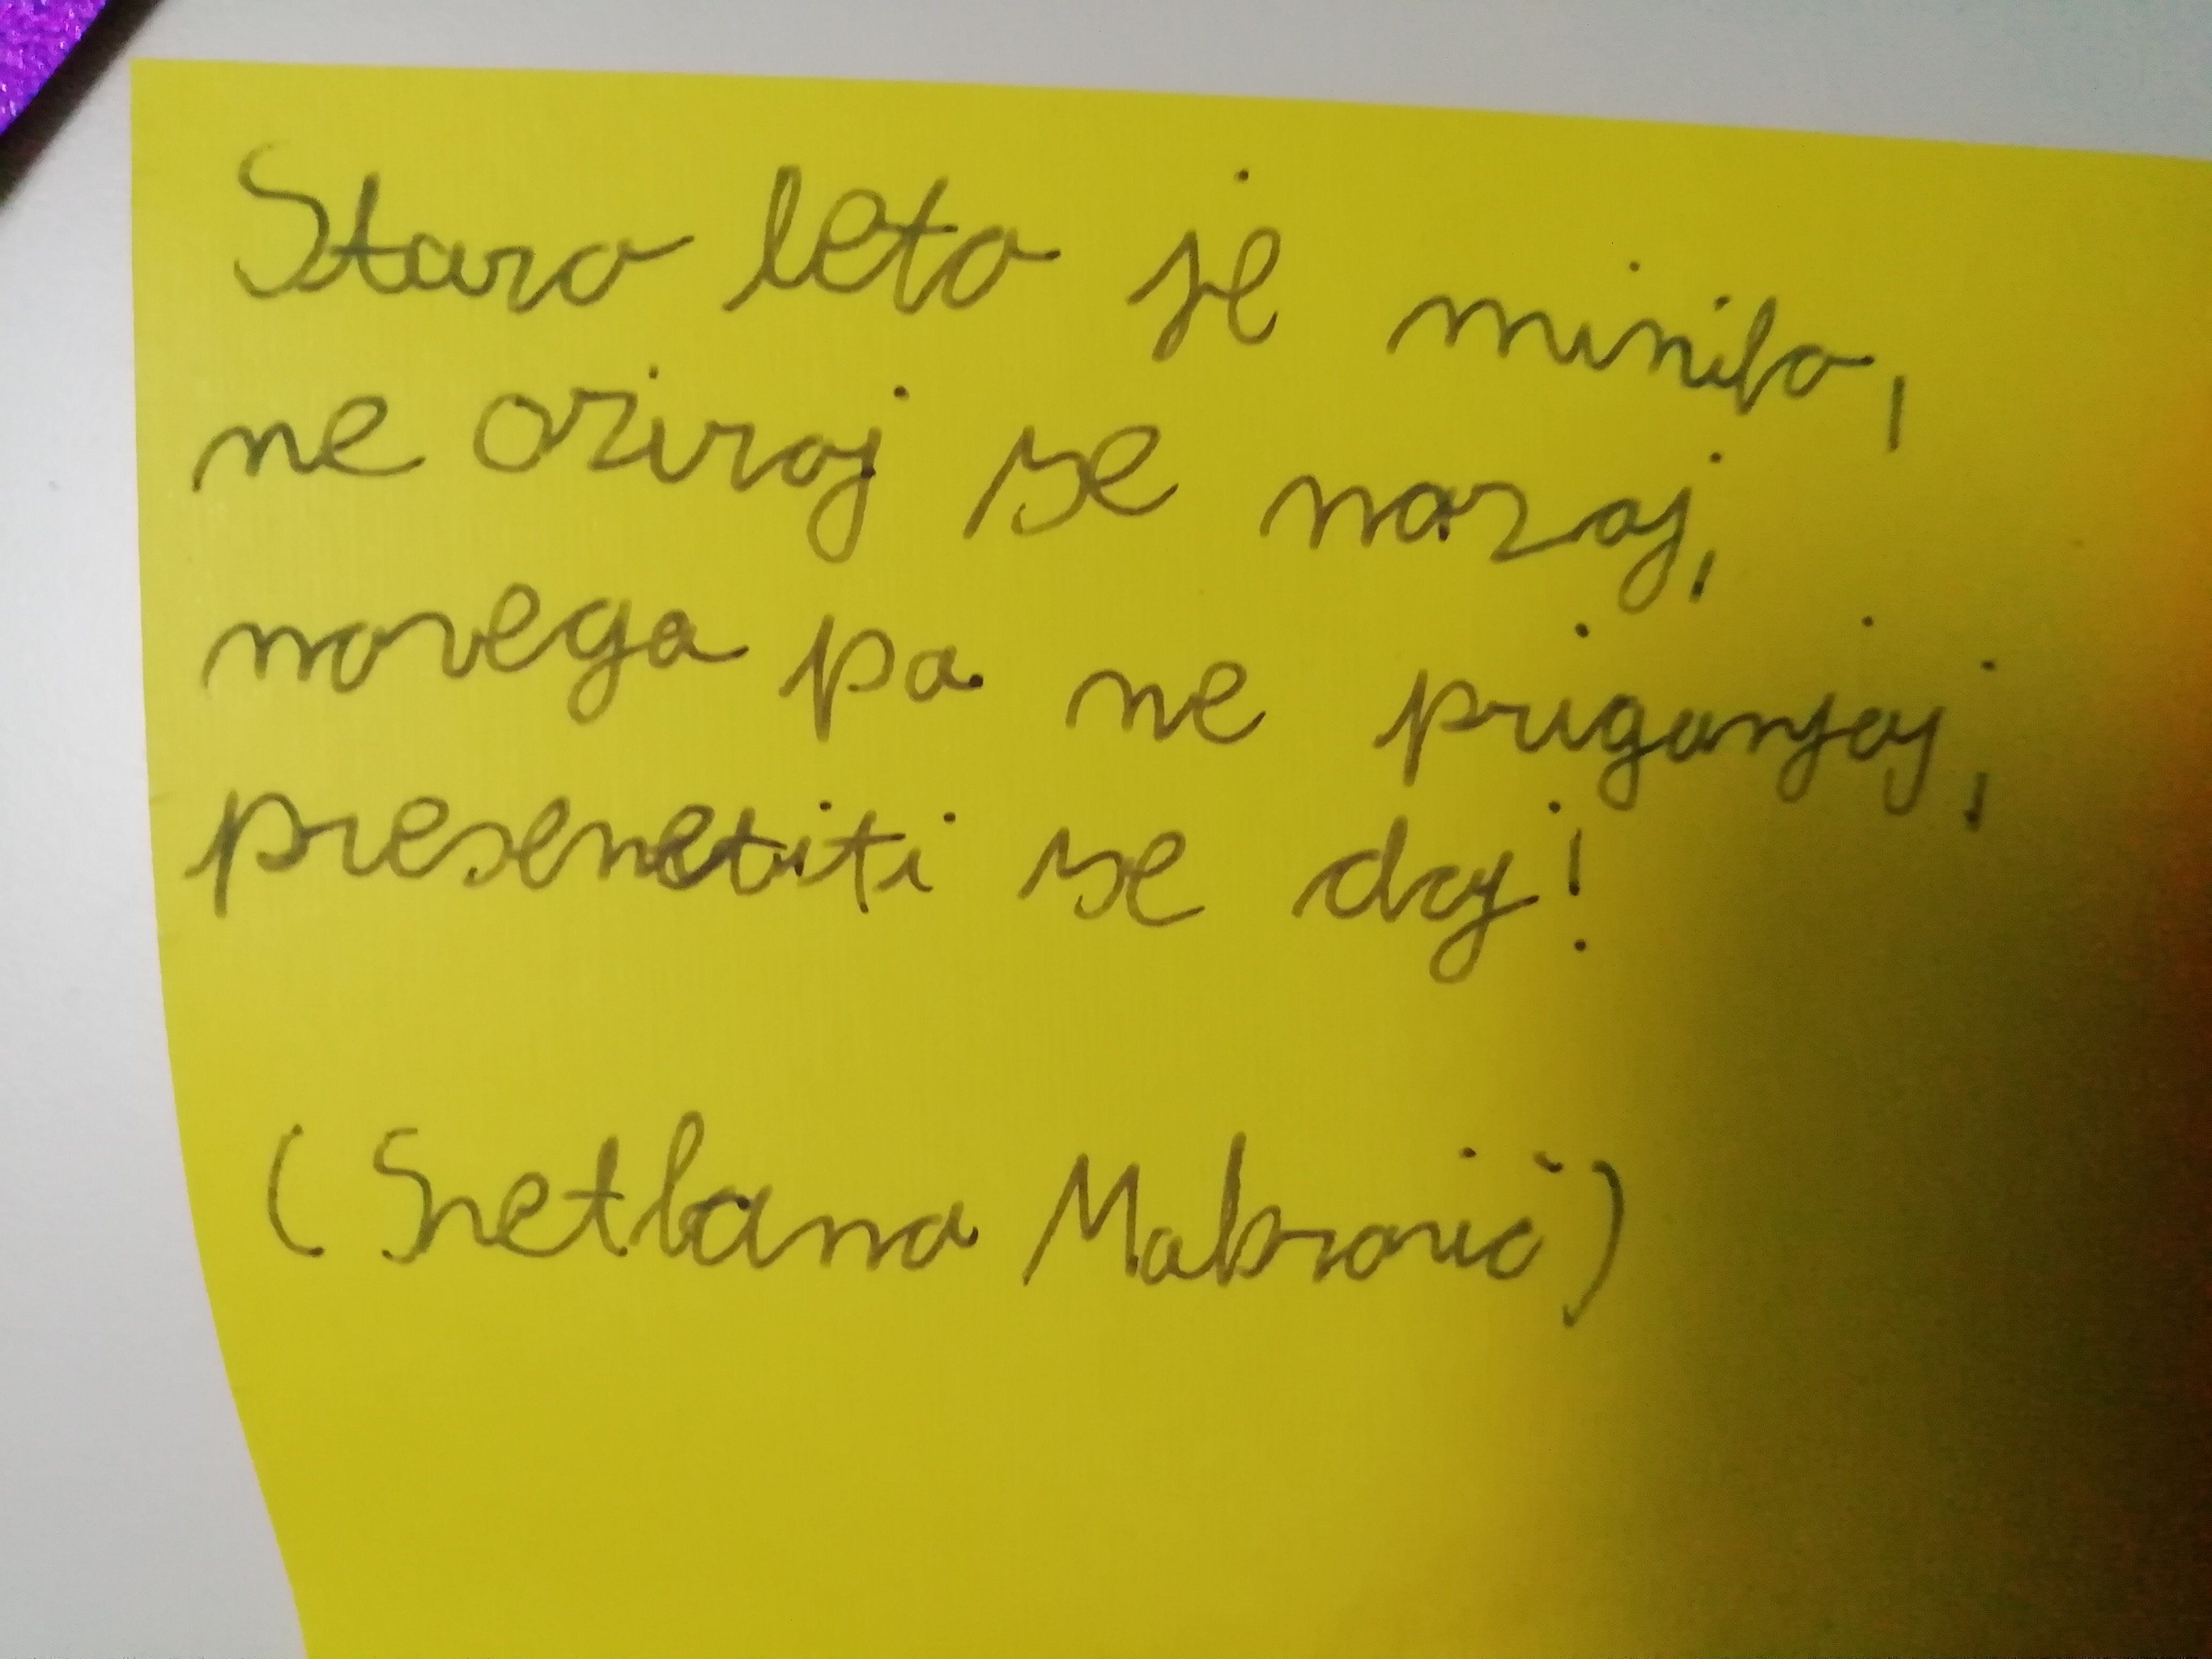 Staro leto je minilo,
ne oziraj se nazaj,
novega pa ne priganjaj,
presenetiti se daj!
(Svetlana Makarovič)